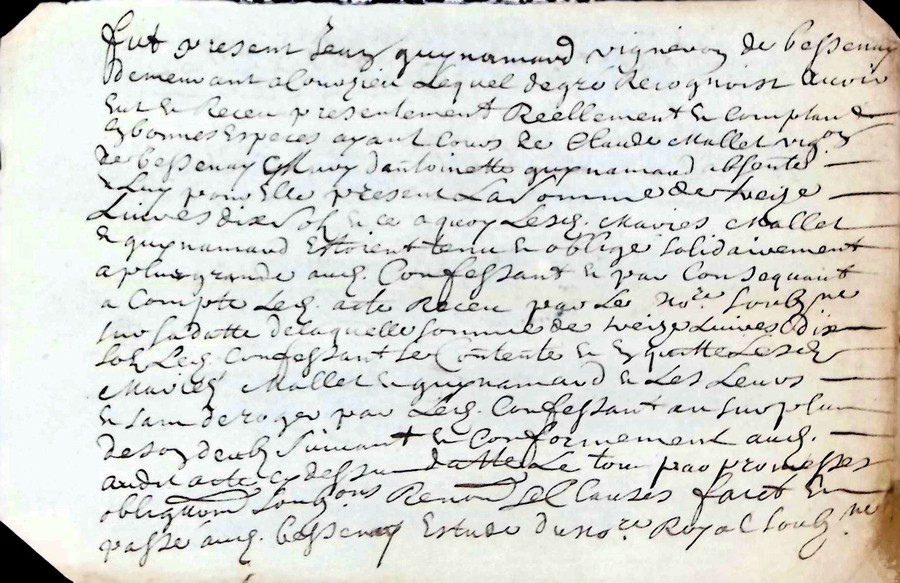 fut present Jean guynamand vigneron de bessenay
demeurant a Lequel de gré Recognoist avoir
Eut et Receu presentement Reellement et comptan
en bonnes Especes ayant Cours de Claude Mallet vig.on
de bessenay Mary d'antoinette guynamand absente
et Luy pour Elle present La Somme de treize
Livres dix Solz et ce a quoy Lesd. Mariés Mallet
et guynamand Estoient tenu et oblige Solidairement
a plus grande aud. Confessant et par Consequant
a Compte Led. acte Receu par Le no.re Soubz.né
sur sa datte de laquelle Somme de treize Livres dix
solz Led. Confessant Se Contente et En quitte Lesd.
Mariés Mallet et guynamand et Les Leurs
et sans deroger par Led. Confessant au Surplus
de son deub Suivant et Conformement aud.
acte cy dessus datte Le tout par promesses
obligaõn Soubz.ons Renonõn Clauses faict et
passé aud. bessenay Estude du no.re Royal Soubz.né